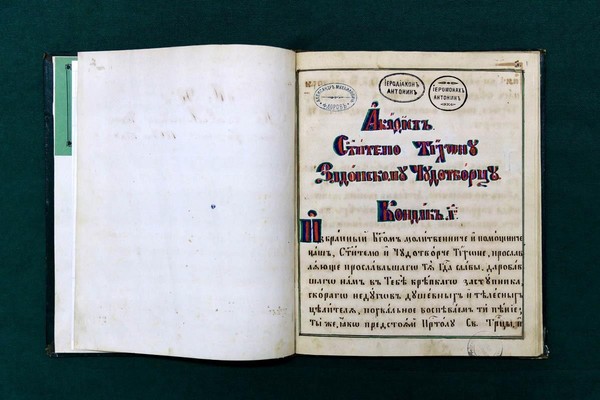 ІЕРОДІАКОНЪ
АНТОНИНЪ
ІЕРОМОНАХЪ
АНТОНИНЪ
Акаѳистъ
Ст҃ителю Тѵ́хону
Задонскому Чудотворцу.
Кондакъ, а҃.
Избранный Бг҃омъ молитвенниче и помощниче
нашъ, Ст҃ителю и҆ Чудотворче Тѵхоне, прослав-
ляюще прославльшаго тѧ Гд҃а славы, даровав-
шаго намъ въ Тебѣ крѣпкаго заступника
скораго недуговъ душевныхъ и тѣлесныхъ
цѣлителя, похвальное воспѣваемъ ти пѣніе;
Ты же, ꙗко предстояй Прⷭ҇толу Св. Трⷪ҇цы, и